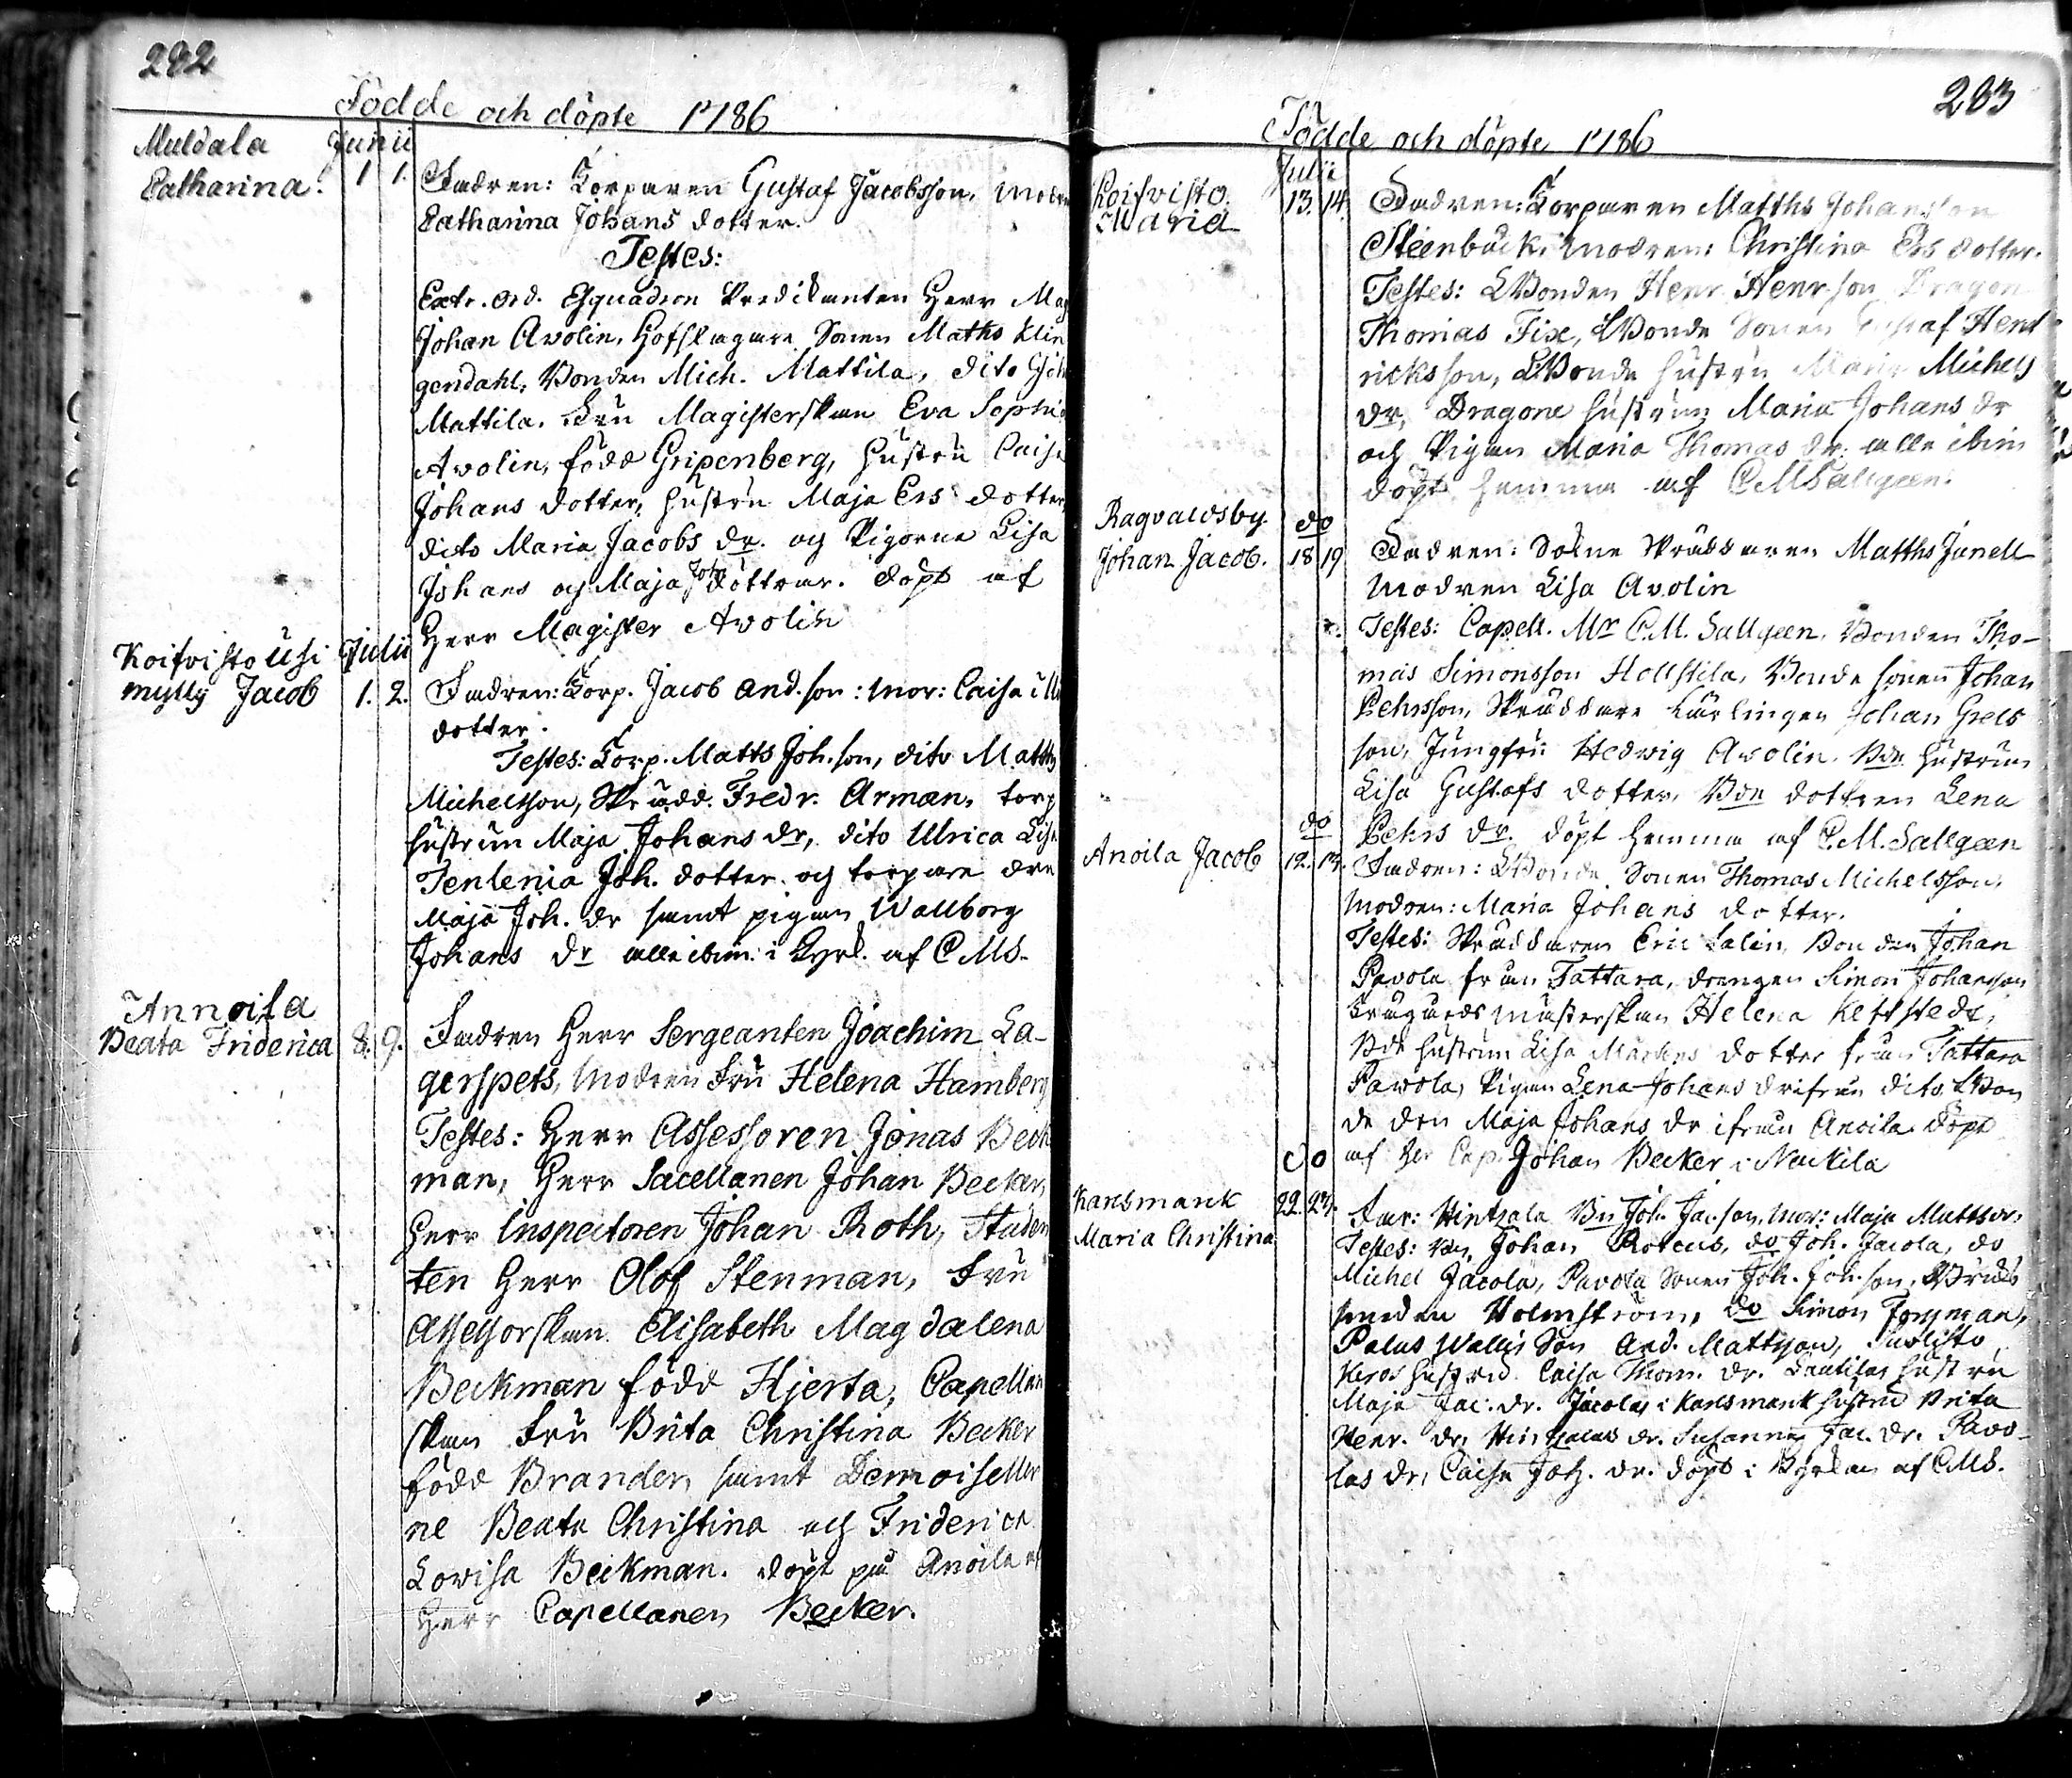 282
Födde och döpte 1786
Muldala Junii
Catharina. 1 1. Fadren: Torparen Gustaf Jacobsson, modren
Catharina Johans dotter.
Testes:
Extr. Ord. Esquadron Predikanten Herr Mag
Johan Avolin, Hofslagare Sonen Maths Klin
gendahl, Bonden Mich. Mattila, dito
Mattila. Fru Magisterskan Eva Sophia
Avolin, född Gripenberg, hustru Caisa
Johans dotter, hustru Maja Ers dotter,
dito Maria Jacobs dr. och Pigorne Lisa
Johans och Maja Joh döttrar. döpt af
Herr Magister Avolin
Koifvisto Usi Julii
mylly Jacob 1. 2. Fadren: Torp. Jacob And.son: mor: Caisa
dotter.
Testes: Torp. Matts Joh.son, dito Matths
Michelsson, Skrädd. Fredr. Arman, torp
hustrun Maja Johans dr, dito Ulrica Lisa
Tenlenia Joh. dotter och torpare
Maja Joh. dr samt pigan Wallborg
Johans dr alle ibm: i Kyrk. af CMS.
Annoila
Beata Friderica 8. 9. Fadren Herr Sergeanten Joachim La-
gerspets, Modren Fru Helena Hamberg
Testes: Herr Assessoren Jonas Beck
man, Herr Sacellanen Johan Becker,
Herr Inspectoren Johan Roth, Studen
ten Herr Olof Stenman, Fru
Assessorskan Elisabeth Magdalena
Beckman född Hjerta, Capellan
skan Fru Brita Christina Becker
född Brander, samt Demoiseller
ne Beata Christina och Friderica
Lovisa Beckman. döpt på Anoila af
Herr Capellanen Becker.
283
Födde och döpte 1786
Julii
Koifvisto. 13. 14. Fadren: Torparen Matths Johansson
Maria Steenbäck, modren: Christina Ers dotter.
Testes: Bonden Henr. Henr.son Dragon
Thomas Fix, Bonde Sonen Gustaf Hend
ricksson, Bonde hustru Maria Michels
dr, Dragone hustrun Maria Johans dr
och Pigan Maria Thomas dr. alle ibm
döpt hemma af CMSallgeen.
Ragvaldsby. do
Johan Jacob. 18 19 Fadren: Sokne Skräddaren Matths Junell
Modren Lisa Avolin
Testes: Capell. Mr C.M. Sallgeen, Bonden Tho-
mas Simonsson Hollstila, Bonde sonen Johan
Pehrsson, Skräddare Lärlingen Johan Grels
son, Jungfru Hedwig Avolin, Bde hustrun
Lisa Gustafs dotter, Bde dottren Lena
do Pehrs dr. döpt hemma af C.M. Sallgeen
Anoila Jacob 12. 13. Fadren: Bonde Sonen Thomas Michelsson,
Modren: Maria Johans dotter.
Testes: Skräddaren Eric Salin, Bonden Johan
Pavola från Tattara, drengen Simon Johansson
Helena
Bde hustrun Lisa Mårtens dotter från Tattara
Pavola, Pigan Lena Johans dr ifrån dito, Bon
de den Maja Johans dr ifrån Anoila. döpt
do af Her Cap. Johan Becker i Nackila
Karlsmark 22. 23. Far: Hintzala Bn Joh. Jac.son, Mor: Maja Matts dr,
Maria Christina Testes: Bn Johan Roteus, do Joh. Jacola, do
Michel Jacola, Pavola Sonen Joh. Joh.son,
smeden Holmström, do Simon Forsman,
Palus Wallis Son And. Mattsson,
Keros hustru Caisa Thom. dr. hustru
Maja Jac. dr. Jacolas i Karlsmark hustru Brita
Henr. dr, Hintzalas dr. Susanna Jac. dr. Pavo-
las dr, Caisa Joh. dr. döpt i Kyrkan af CMS.